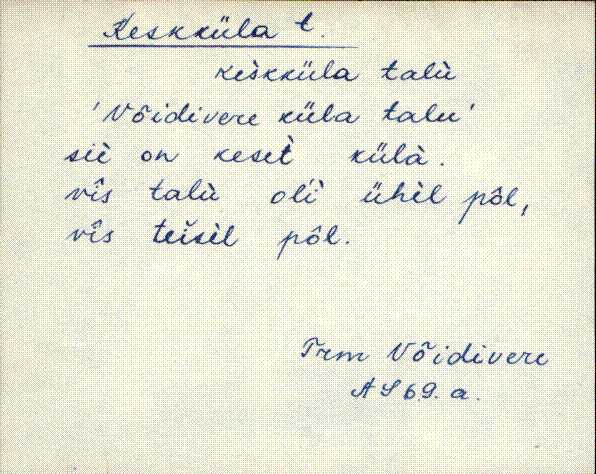 Keskküla t.
keskküla talù
'Võidivere küla talu'
siè on keset̀ külà.
vîs talù oĺi ühèl pôl,
vîs teìsèl pôl.
Trm Võidivere
AS 69. a.